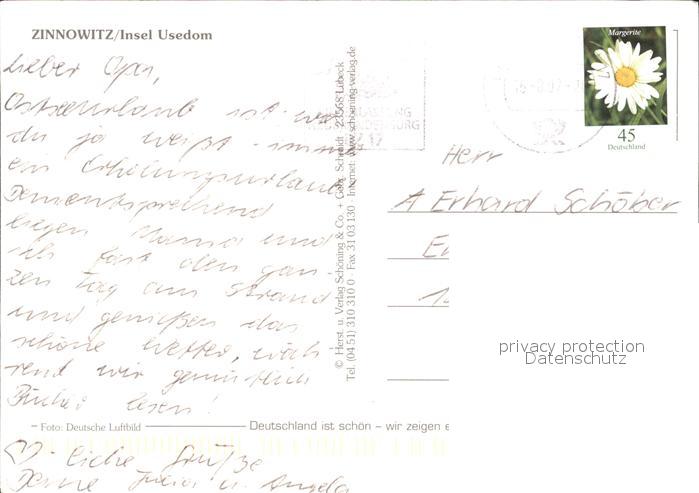 ZINNOWITZ/Insel Usedom
Lieber Opa,
Ostseeurlaub ist wie
du ja weißt immer
ein Erholungsurlaub.
Dementsprechend
liegen Mama und
ich fast den gan-
zen Tag am Strand
und genießen das
schöne Wetter, wäh-
rend wir gemütlich
Bücher lesen!
Liebe Grüße
Deine Julia u. Angela
Foto: Deutsche Luftbild
Deutschland ist schön – wir zeigen e
© Herst. u. Verlag Schöning & Co. + Gebr. Schmidt · 23568 Lübeck
Tel. (04 51) 310 310 0 · Fax 31 03 130 · Internet: www.schoening-verlag.de
Margerite
45
Deutschland
17
Herr
A Erhard Schöber
privacy protection
Datenschutz